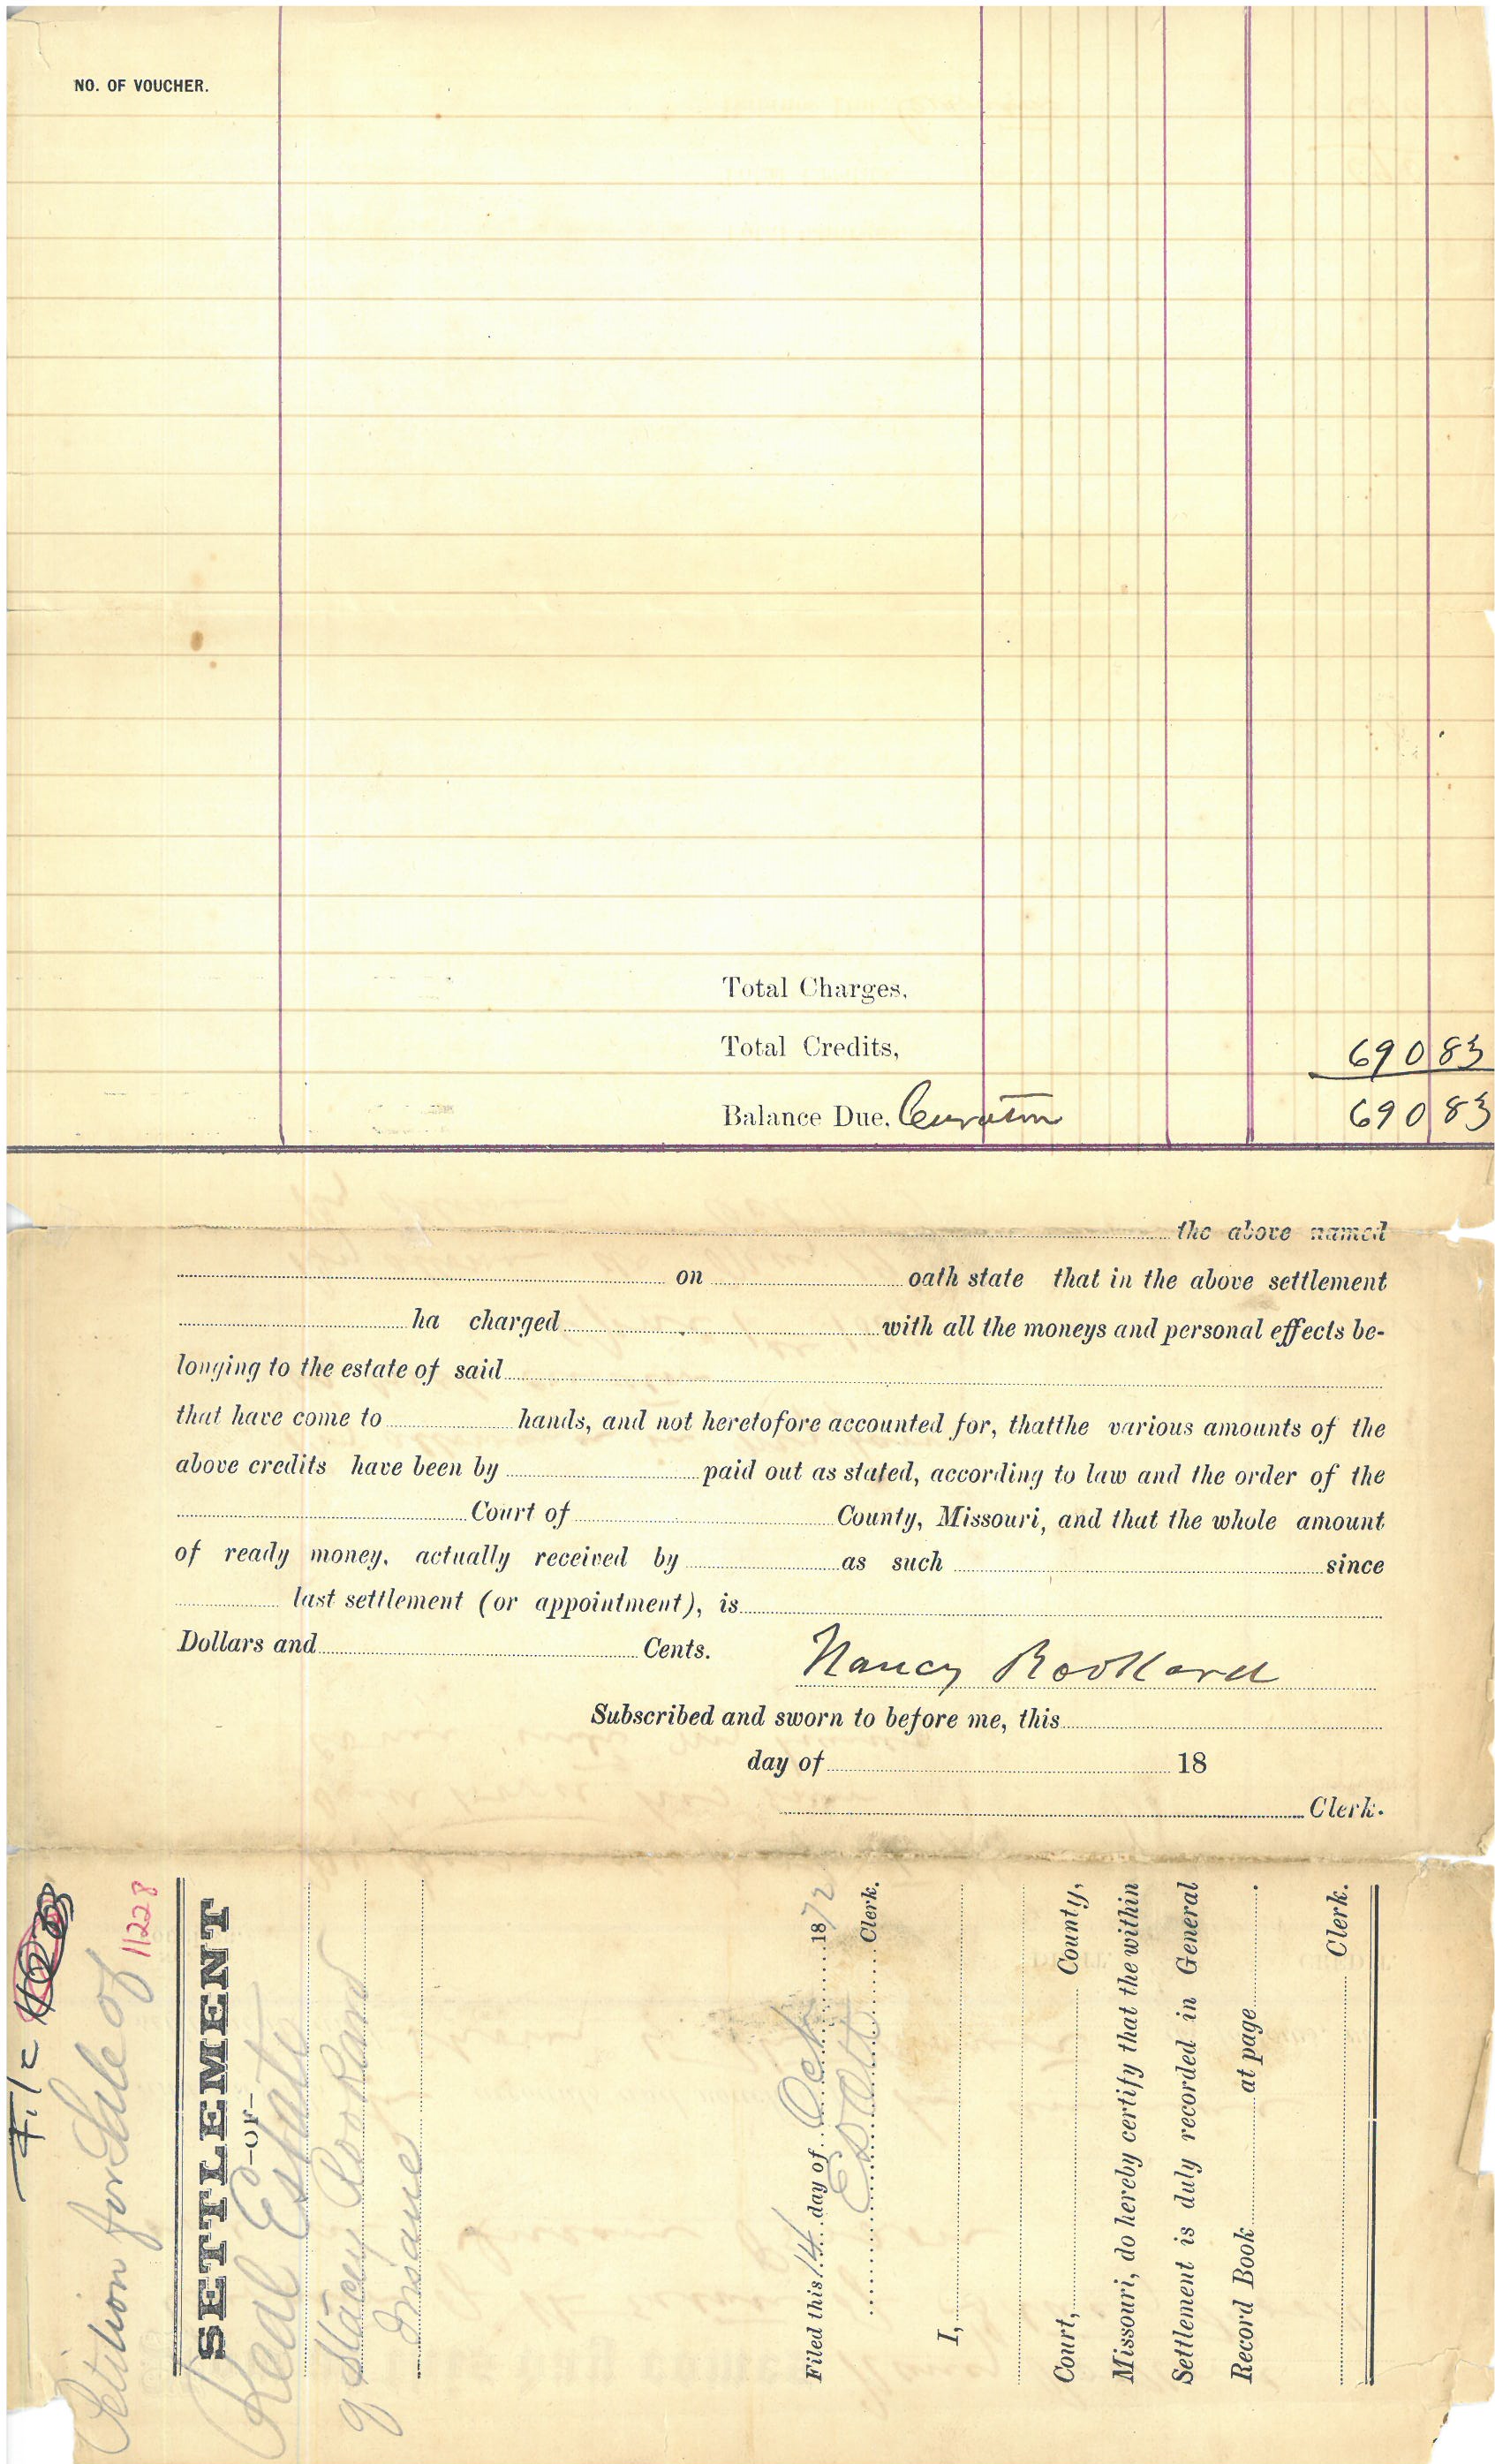 NO. OF VOUCHER.
Total Charges,
Total Credits, 690 83
Balance Due, Curator 690 83
the above named
on oath state that in the above settlement
ha charged with all the moneys and personal effects be-
longing to the estate of said
that have come to hands, and not heretofore accounted for, thatthe various amounts of the
above credits have been by paid out as stated, according to law and the order of the
Court of County, Missouri, and that the whole amount
of ready money, actually received by as such since
last settlement (or appointment), is
Dollars and Cents. Nancy Rookard
Subscribed and sworn to before me, this
day of 18
Clerk.
File
Petition for Sale of
11228
SETTLEMENT
—OF—
Real Estate
of Stacy Rookard
Insane
Filed this 14 day of Oct 1872
Clerk.
I,
Court, County,
Missouri, do hereby certify that the within
Settlement is duly recorded in General
Record Book at page .
Clerk.